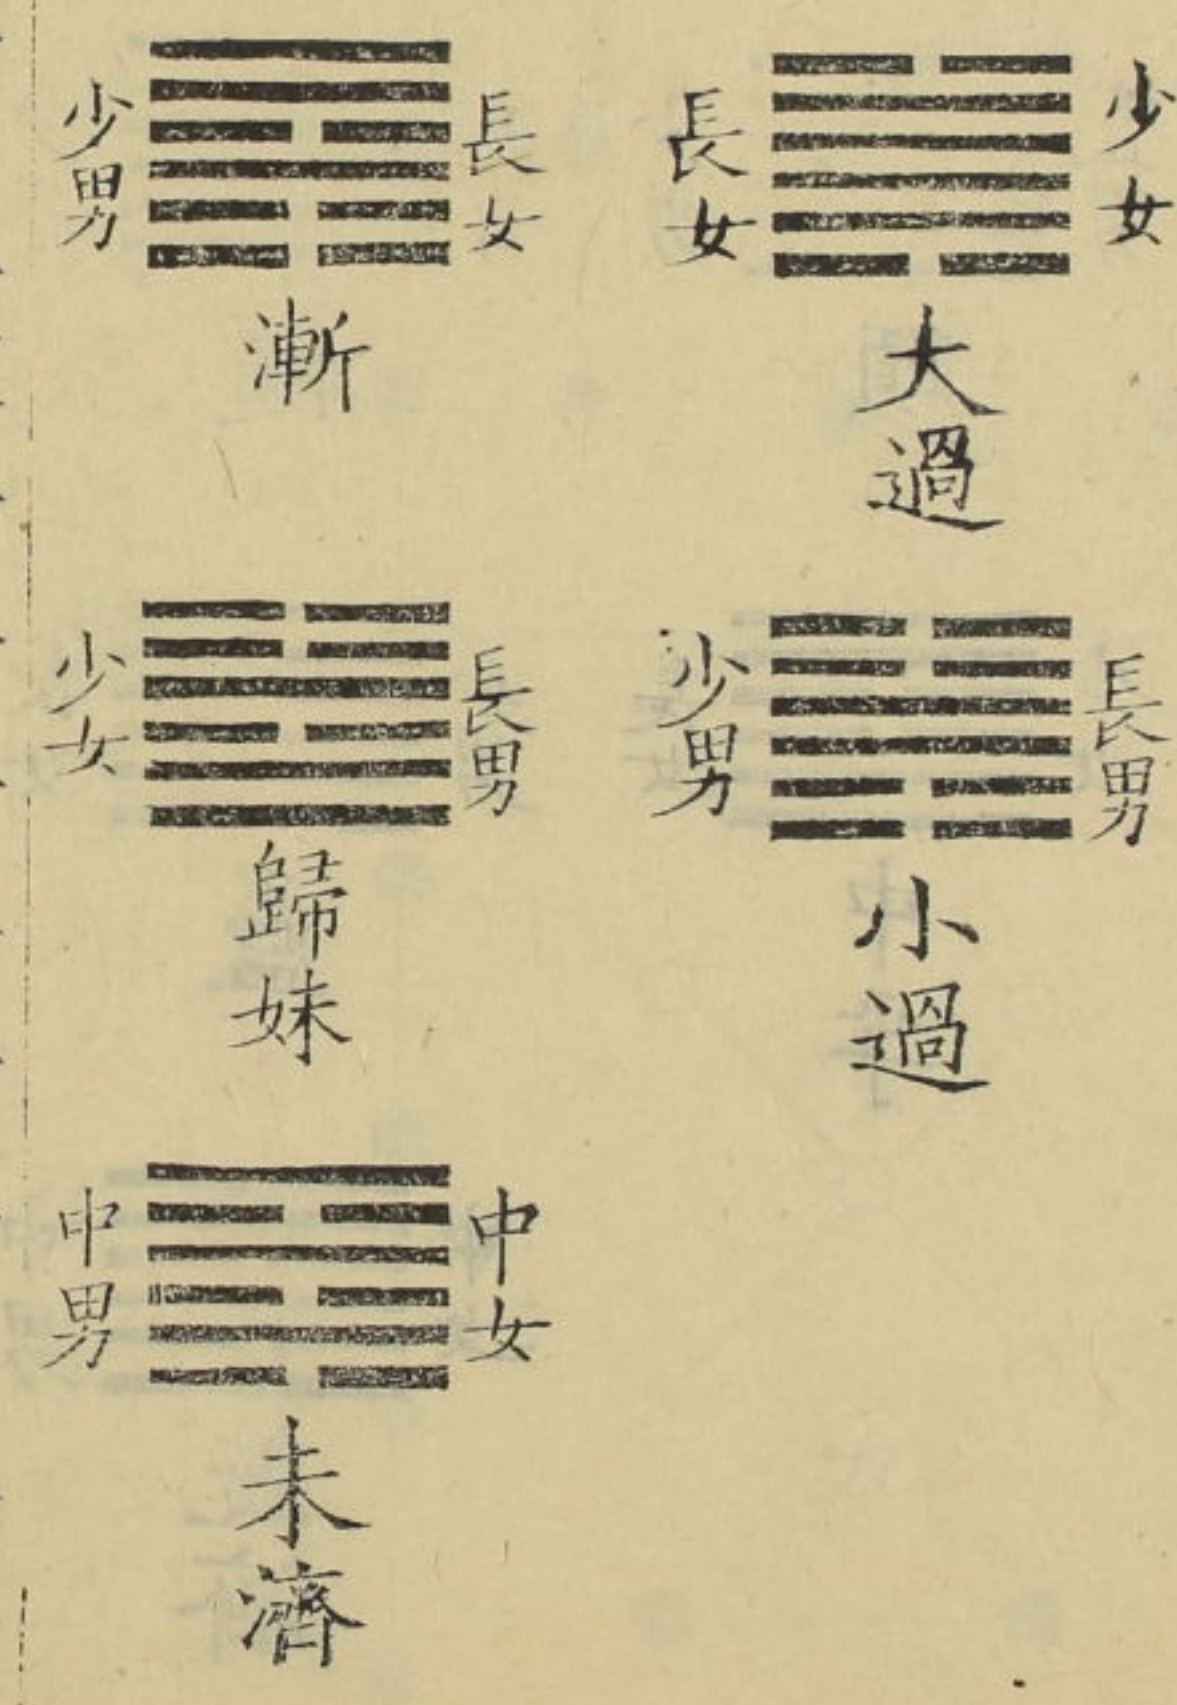 少女
長女
大過
長男
少男
小過
長女
少男
漸
長男
少女
歸妹
中女
中男
未濟